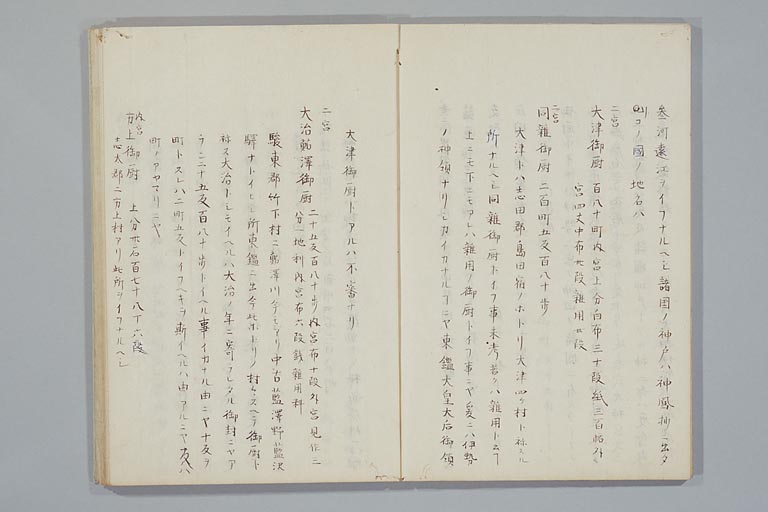 参河遠江ヲイフナルヘシ諸国ノ神戸ハ神鳳抄ニ出タ
リコノ國ノ地名ハ
二宮
大津御厨 百八十町内宮上分白布三十段紙三百帖外
宮四丈中布七段雜用五段
二宮
同雜御厨 二百町五反百八十歩
大津トハ志田郡島田宿ノホトリ大津四ヶ村ト称スル
所ナルヘシ同雜御厨トイフ事未考若クハ雜用ト云フ
上ニモ下ニモアレハ雜用ノ御厨トイフ事ニヤ爰ニハ伊勢
ノ神領ナリシカイカナルコニヤ東鑑大皇大后御領
大津御厨トアルハ不審ナリ
二宮
大治鮎澤御厨 二十五反百八十歩内宮布十段外宮見作二
分一地利内宮布六段銭雜用料
駿東郡竹下村ニ鮎澤川今モアリ中古藍澤野藍沢
驛ナトイヒシ所東鑑ニ出今此ホトリノ村々スヘテ御厨ト
称ス大治トシモイヘルハ大治ノ年ニ寄フレタル御封ニヤア
ラン二十五反百八十歩トイヘル事イカナル由ニヤ十反ヲ
町トスレハ二町五反トイフヘキヲ斯イヘルハ由アルニヤ反ハ
町ノアヤマリニヤ
内宮
方上御厨 上分米石百七十八丁六段
志太郡ニ方上村アリ此所ヲイフナルヘシ